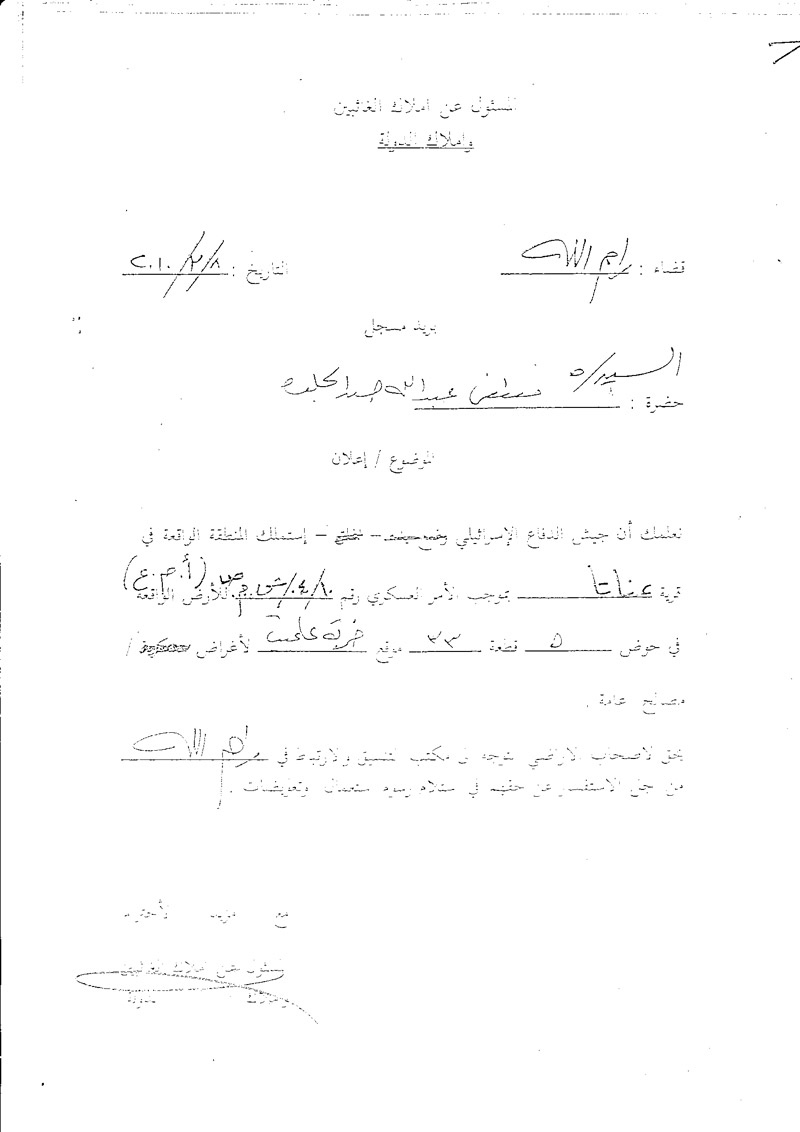 المسئول عن املاك الغائبين
واملاك الدولة
قضاء : رام الله
التاريخ : ٢٠١٠/٢/٨
بريد مسجل
السيد/ه
حضرة : مصطفى عبدالله
الموضوع / إعلان
نعلمك أن جيش الدفاع الإسرائيلي - - إستملك المنطقة الواقعة في
قرية عناتا بموجب الأمر العسكري رقم (أ.م.ع) للأرض الواقعة
في حوض ٥ قطعة ٣٣ موقع خربة علميت لأغراض /
مصالح عامة .
يحق لاصحاب الاراضي التوجه الى مكتب التنسيق والارتباط في رام الله
من اجل الاستفسار عن حقهم في استلام رسوم استعمال وتعويضات .
مع مزيد الأحترام
المسئول عن املاك الغائبين
واملاك الدولة